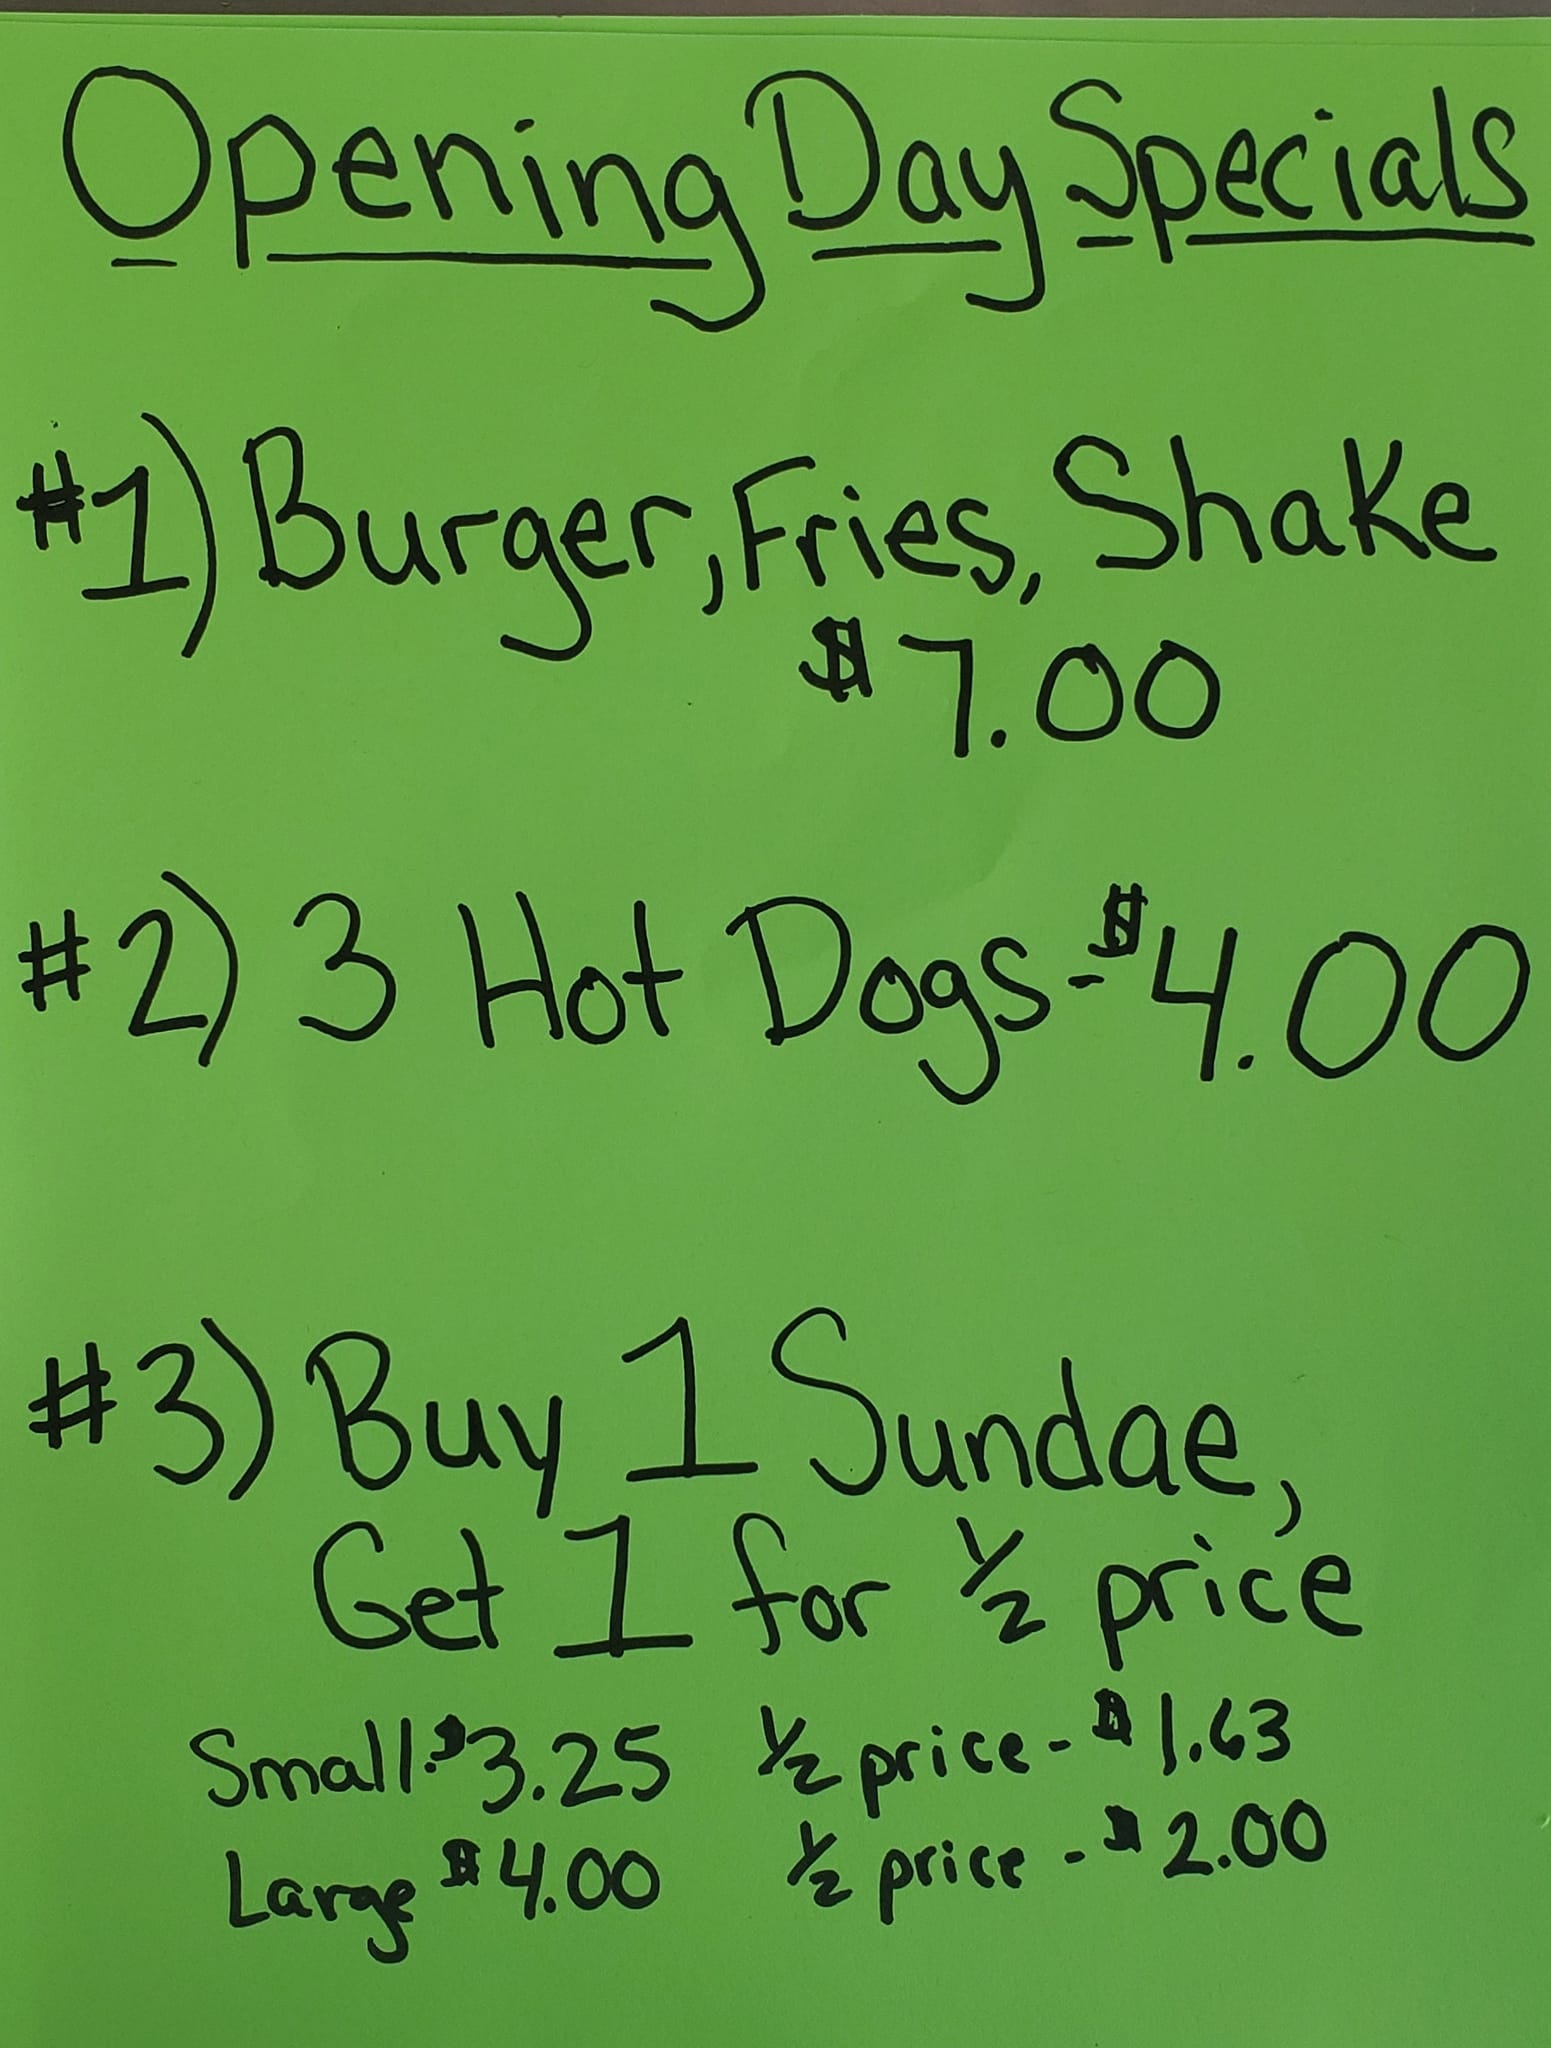 Opening Day Specials
#1) Burger, Fries, Shake
$7.00
#2) 3 Hot Dogs-$4.00
#3) Buy 1 Sundae,
Get 1 for ½ price
Small-$3.25 ½ price-$1.63
Large $4.00 ½ price-$2.00